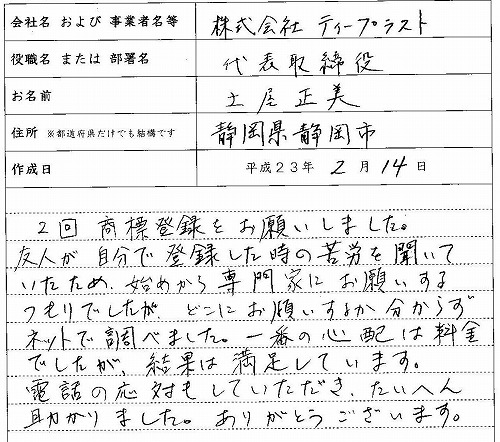 会社名 および 事業者名等 株式会社 ティープラスト
役職名 または 部署名 代表取締役
お名前 土屋正美
住所 ※都道府県だけでも結構です 静岡県静岡市
作成日 平成23年 2月14日
2回 商標登録をお願いしました。
友人が自分で登録した時の苦労を聞いて
いたため、始めから専門家にお願いする
つもりでしたが、どこにお願いするか分からず
ネットで調べました。一番の心配は料金
でしたが、結果は満足しています。
電話の応対もしていただき、たいへん
助かりました。ありがとうございます。